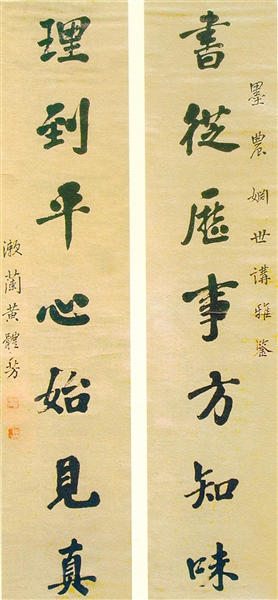 墨農婣世講雅鑒
書從歷事方知味
理到平心始見真
漱蘭黃體芳